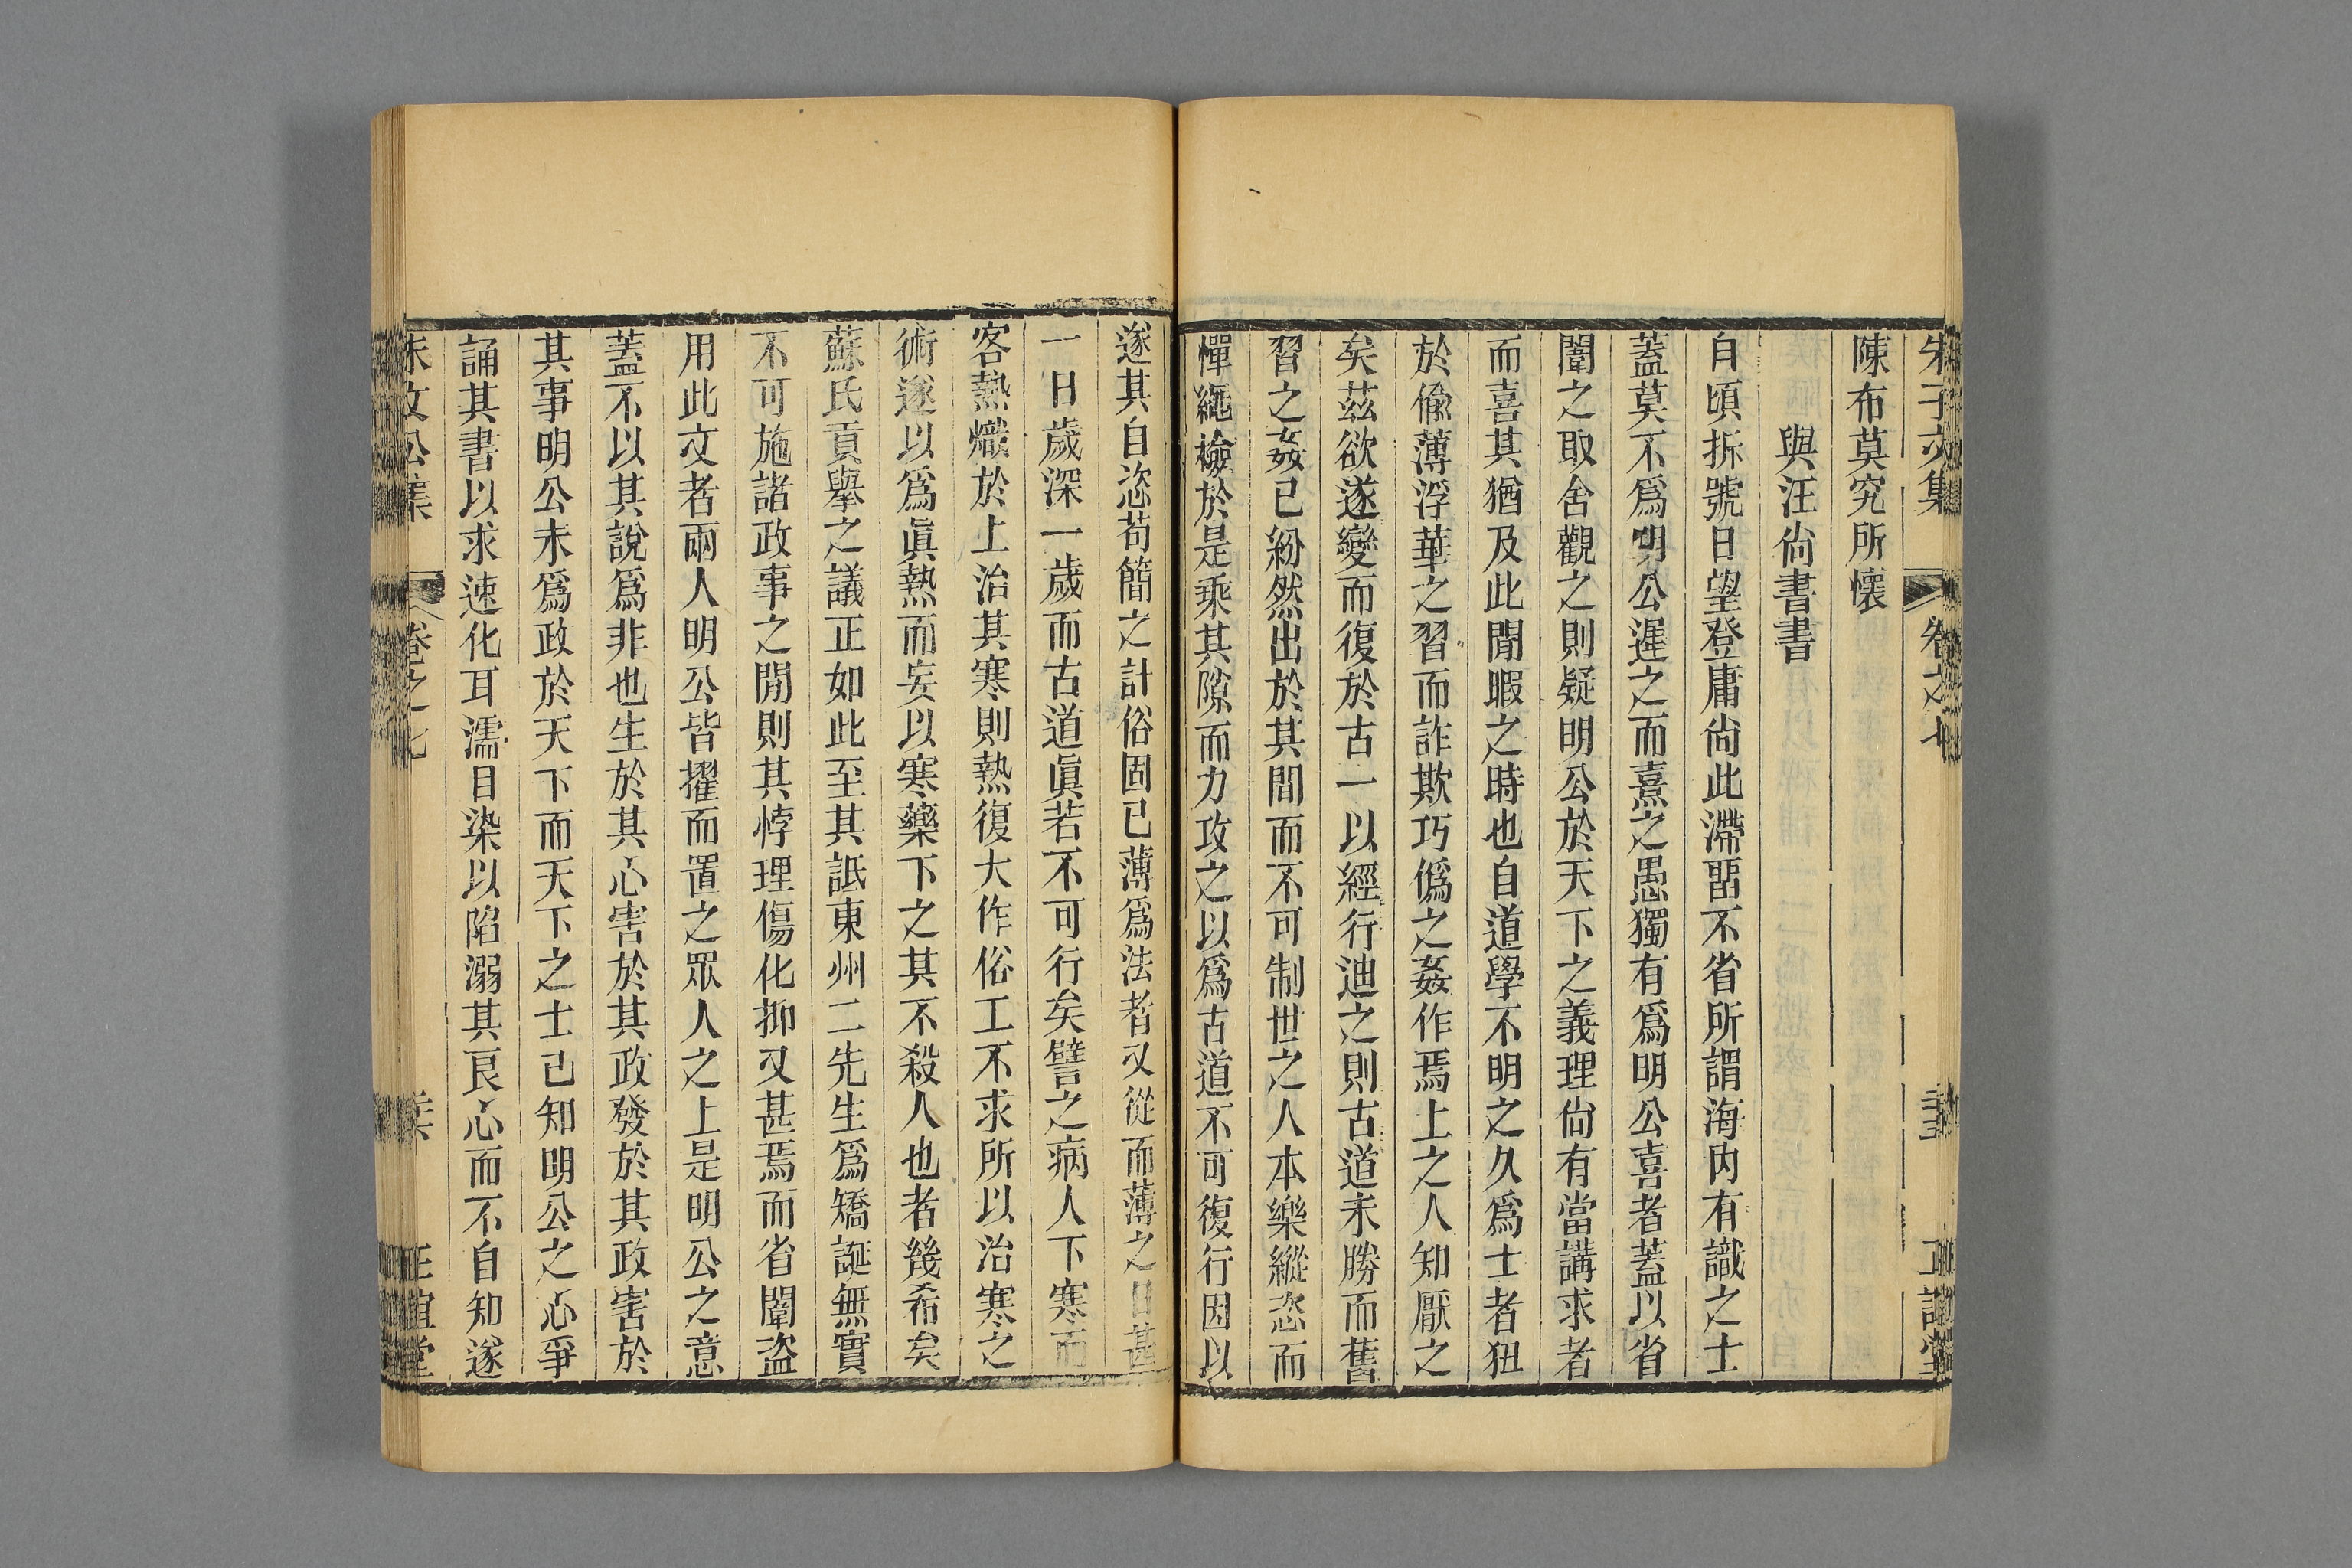 朱子文集 卷之七 正誼堂
陳布莫究所懷
與汪尙書書
自頃拆號日望登庸尙此滯畱不省所謂海内有識之士
蓋莫不爲明公遲之而熹之愚獨有爲明公喜者蓋以省
闈之取舍觀之則疑明公於天下之義理尙有當講求者
而喜其猶及此閒暇之時也自道學不明之久爲士者狃
於偸薄浮華之習而詐欺巧僞之姦作焉上之人知厭之
矣茲欲遂變而復於古一以經行迪之則古道未勝而舊
習之姦已紛然出於其間而不可制世之人本樂縱恣而
憚繩檢於是乘其隙而力攻之以爲古道不可復行因以
遂其自恣苟簡之計俗固已薄爲法者又從而薄之日甚
一日歲深一歲而古道眞若不可行矣譬之病人下寒而
客熱熾於上治其寒則熱復大作俗工不求所以治寒之
術遂以爲眞熱而妄以寒藥下之其不殺人也者幾希矣
蘇氏貢舉之議正如此至其詆東州二先生爲矯誕無實
不可施諸政事之閒則其悖理傷化抑又甚焉而省闈盜
用此文者兩人明公皆擢而置之眾人之上是明公之意
蓋不以其說爲非也生於其心害於其政發於其政害於
其事明公未爲政於天下而天下之士已知明公之心爭
誦其書以求速化耳濡目染以陷溺其良心而不自知遂
朱文公集 卷之七 正誼堂